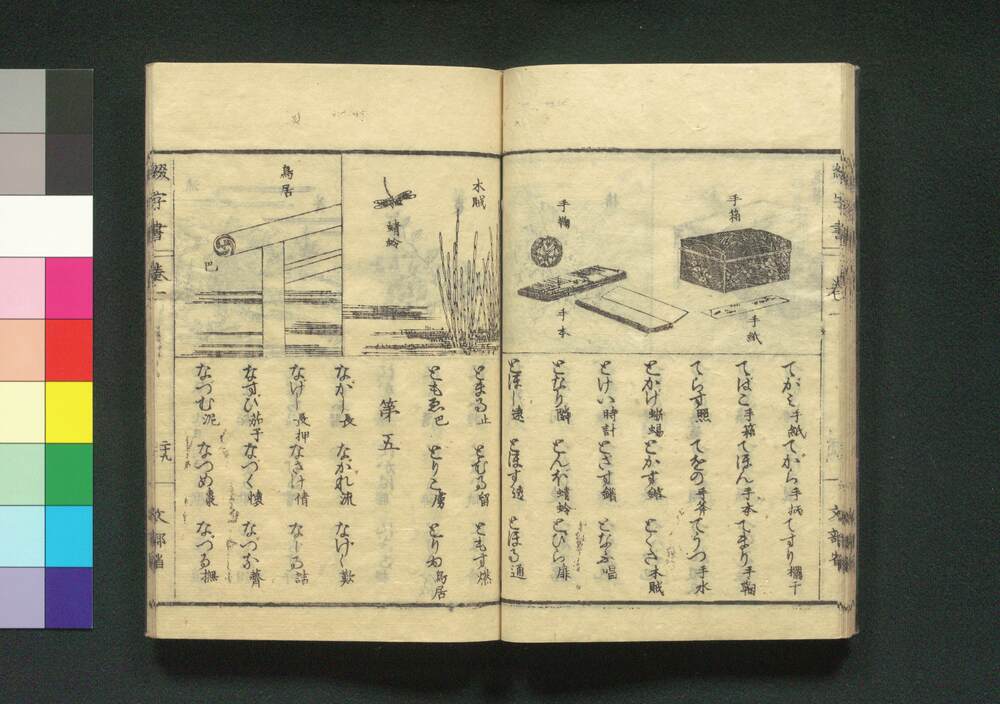 手箱
手紙
手鞠
手本
てがみ手紙 てがら手柄 てすり欄干
てばこ手箱 てほん手本 てまり手鞠
てらす照 てをの手斧 てうづ手水
とかげ蜥蜴 とかす鎔 とくさ木賊
とけい時計 とざす鎖 となふ唱
となり隣 とんぼ蜻蛉 とびら扉
とほし遠 とほす透 とほる通
木賊
蜻蛉
鳥居
巴
とまる止 とむる留 ともす燃
ともゑ巴 とりこ虜 とりゐ鳥居
第五
ながし長 ながれ流 なげく歎
なげし長押 なさけ情 なじる詰
なすび茄子 なつく懐 なづな薺
なづむ泥 なつめ棗 なづる撫
綴字書 卷一
文部省